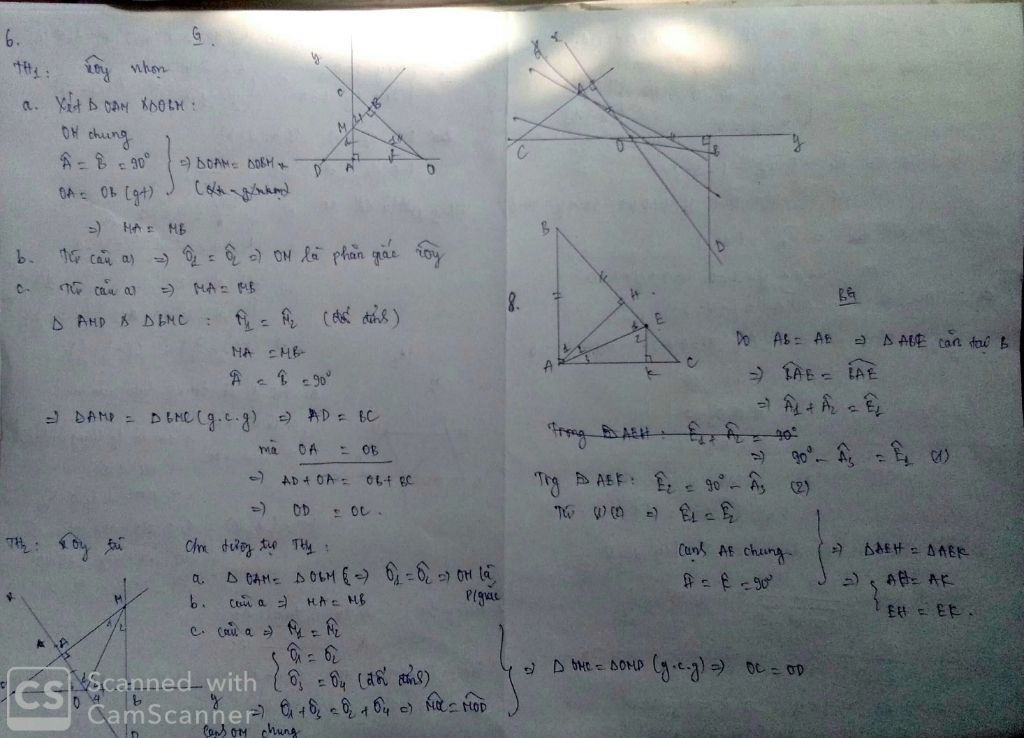 6.
G.
TH1: xOy nhọn
a. Xét Δ OAM & Δ OBM:
OM chung
Â = B̂ = 90°
OA = OB (gt)
=> Δ OAM = Δ OBM
=> MA = MB
b. Từ câu a) => Ô1 = Ô2 => OM là phân giác xOy
c. Từ câu a) => MA = MB
Δ AMD & Δ BMC: M̂1 = M̂2 (đối đỉnh)
MA = MB
Â = B̂ = 90°
=> Δ AMD = Δ BMC (g.c.g) => AD = BC
mà OA = OB
=> AD + OA = OB + BC
=> OD = OC.
TH2: xOy tù
Cm tương tự TH1:
a. Δ OAM = Δ OBM => Ô1 = Ô2 => OM là p/giác
b. câu a => MA = MB
c. câu a => M̂1 = M̂2
Ô1 = Ô2
Ô3 = Ô4 (đối đỉnh)
=> Ô1 + Ô3 = Ô2 + Ô4 => MOC = MOD
Cạnh OM chung
=> Δ OMC = Δ OMD (g.c.g) => OC = OD
x
A
C
O
B
y
D
8.
B
H
E
A
K
C
BG
Do AB = AE => Δ ABE cân tại B
=> BAE = BAE
=> Â1 + Â2 = Ê1
Trong Δ AEH: Ê1 + Â2 = 90°
=> 90° - Â3 = Ê1 (1)
Trg Δ AEK: Ê2 = 90° - Â3 (2)
Từ (1) (2) => Ê1 = Ê2
Cạnh AE chung
Ĥ = K̂ = 90°
=> Δ AEH = Δ AEK
=> AH = AK
EH = EK.
CS Scanned with
CamScanner